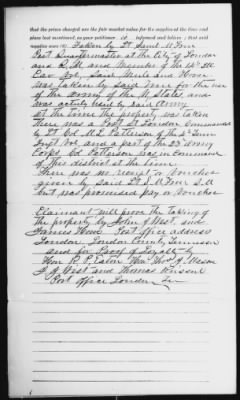 that the prices charged are the fair market value for the supplies at the time and
place last mentioned, as your petitioner is informed and believes; that said
supplies were Taken by Lt Saml M
Post Quartermaster at the City of Loudon
and R. M. and Member of the
Cav Vol, Said Mule and Horse
was taken by Said for the use
of the army of the U States and
was actually used by said Army
at the time the property was taken
There was a Post at Loudon Commanded
by Lt Col M. L. Patterson of the 4th Tenn
Inft Vol and a part of the 23d Army
Corps Col Patterson was in Command
of this district at the time.
There was no receipt or Voucher
given by Said Lt S. M.
but was promised pay or Voucher
Claimant will prove the taking of
the property by John J West and
James Howe Post office address
Loudon, Loudon County, Tennessee
and for Proof of Loyalty by
Hon R. P. Eaton Hon Thos J Mason
J. J. West and Thomas
Post Office Loudon Ten